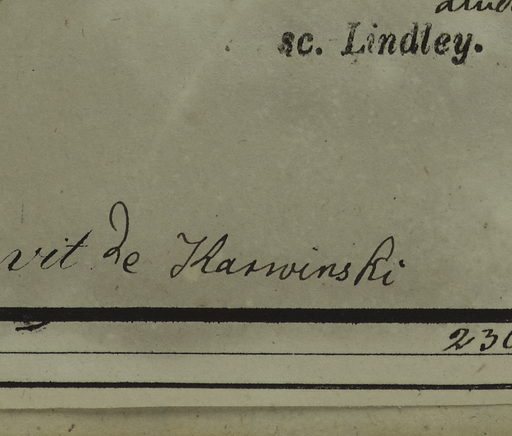 sc. Lindley.
vit de Karwinski